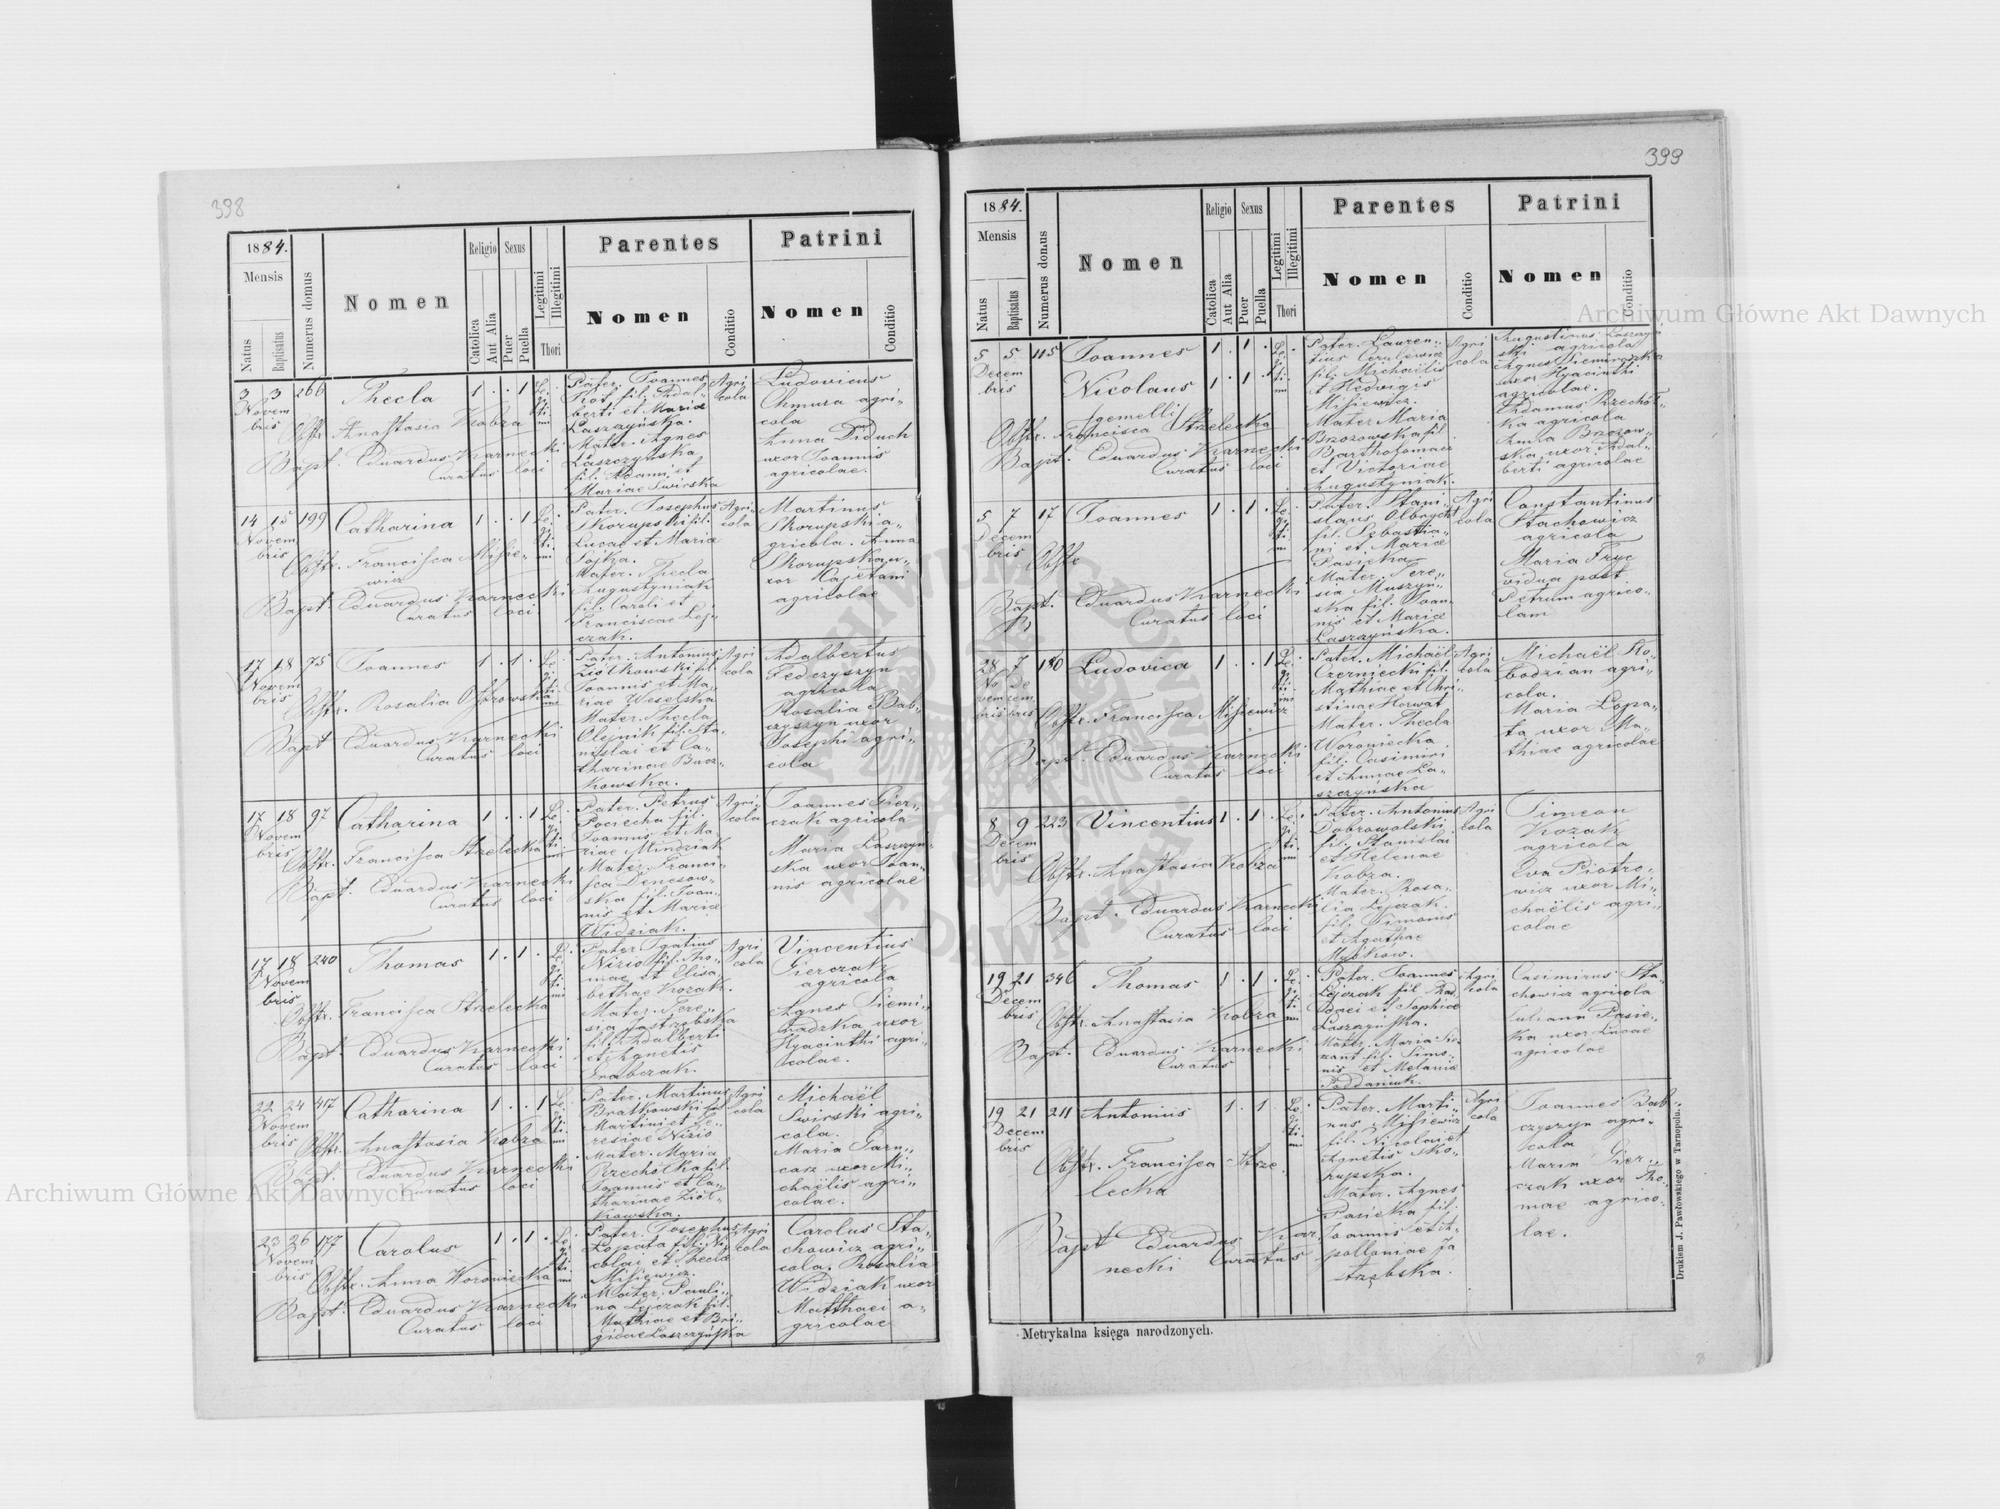 398
1884.
Mensis
Natus
Baptisatus
Numerus domus
Nomen
Religio
Catolica
Aut Alia
Sexus
Puer
Puella
Legitimi
Illegitimi
Thori
Parentes
Nomen
Conditio
Patrini
Nomen
Conditio
3 3 266 Thecla 1 . . 1
Novem
bris
Obstr. Anastasia Kobza
Bapt. Eduardus Karnecki
Curatus loci
Le.
gi
ti.
mi
Pater. Joannes
Piot fil. Adal-
berti et Mariæ
Laszczyńska.
Mater. Agnes
Laszczyńska
fil. Joanni et
Mariae Swirska
Agri
cola
Ludovicus
Chmura agri-
cola
Anna Diduch
uxor Joannis
agricolae.
14 15 199 Catharina 1 . . 1
Novem
bris
Obstr. Francisca Misie-
wicz
Bapt. Eduardus Karnecki
Curatus loci
Le.
gi
ti.
mi
Pater. Josephus
Skorupski fil.
Lucae et Mariæ
Sojka.
Mater. Thecla
Augustyniak
fil. Caroli et
Franciscae Lej-
czak.
Agri-
cola
Martinus
Skorupski a-
gricola. Anna
Skorupska u-
xor Cajetani
agricolae
17 18 75 Joannes 1 . 1 .
Novem
bris
Obstr. Rosalia Ostrowska
Bapt Eduardus Karnecki
Curatus loci
Le.
gi
ti
mi
Pater. Antonius
Ziółkowski fil.
Joannis et Ma-
riae Weselska
Mater. Thecla
Olejnik fil. Sta-
nislai et Ca-
tharinae Bucz-
kowska.
Agri
cola
Adalbertus
Fedczyszyn
agricola
Rosalia Bab-
czyszyn uxor
Josephi agri-
cola
17 18 97 Catharina 1 . . 1
Novem
bris
Obstr. Francisca Strzelecka
Bapt. Eduardus Karnecki
Curatus loci
Le.
gi
ti
mi
Pater. Petrus
Pociecha fil.
Joannis et Ma-
riae Mindziak
Mater. Franci-
sca Denesow-
ska fil. Joan-
nis et Mariæ
Widziak.
Agri-
cola
Joannes Gier-
czak agricola
Maria Laszczyn-
ska uxor Joan-
nis agricolae
17 18 240 Thomas 1 . 1 .
Novem
bris
Obstr. Francisca Strzelecka
Bapt. Eduardus Karnecki
Curatus loci
Le.
gi
ti
mi
Pater Ignatius
Nizio fil. Tho-
mae et Elisa-
bethae Kozak.
Mater. Tere-
sia Jastrzębska
fil. Adalberti
et Agnetis
Grabczak.
Agri
cola
Vincentius
Gierczak
agricola
Agnes Siemi-
radzka uxor
Hyacinthi agri-
colae.
22 24 417 Catharina 1 . . 1
Novem
bris
Obstr. Anastasia Kobza
Bapt. Eduardus Karnecki
Curatus loci
Le.
gi
ti.
mi
Pater. Martinus
Bratkowski fil
Martini et Te-
resiae Nizio
Mater. Maria
Rzechótka fil.
Joannis et Ca-
tharinae Ziół-
kowska.
Agri
cola
Michaël
Swirski agri-
cola.
Maria Garn-
carz uxor Mi-
chaëlis agri-
colae.
23 26 177 Carolus 1 . 1 .
Novem
bris
Obstr. Anna Woroniecka
Bapt. Eduardus Karnecki
Curatus loci
Le.
gi
ti.
mi
Pater. Josephus
Łopata fil. Ni-
colai et Thecla
Misiewicz.
Mater. Pauli-
na Lejczak fil.
Mathiae et Bri-
gidae Laszczyńska
Agri
cola
Carolus Sta-
chowicz agri-
cola. Rosalia
Widziak uxor
Matthaei a-
gricolae
399
1884.
Mensis
Natus
Baptisatus
Numerus domus
Nomen
Religio
Catolica
Aut Alia
Sexus
Puer
Puella
Legitimi
Illegitimi
Thori
Parentes
Nomen
Conditio
Patrini
Nomen
Conditio
5 5 115 Joannes 1 . 1 .
Decem
bris
Nicolaus 1 . 1 .
gemelli
Obstr. Francisca Strzelecka
Bapt. Eduardus Karnecki
Curatus loci
Le.
gi
ti.
mi
Pater. Lauren-
tius
fil. Michaëlis
et Hedwigis
Misiewicz.
Mater Maria
Brzozowska fil
Bartholomaei
et Victoriae
Augustyniak.
Agri
cola
Augustinus Laszczyń
ski agricola
Agnes Siemiradzka
uxor Hyacinthi
agricolae.
Adamus Rzechót-
ka agricola
Anna Brzozow-
ska uxor Adal-
berti agricolae
5 7 17 Joannes 1 . 1 .
Decem
bris
Obstr
Bapt. Eduardus Karnecki
Curatus loci
Le.
gi
ti.
mi
Pater. Stani-
slaus Olbrycht
fil. Sebastia-
ni et Mariæ
Pasieka
Mater. Tere-
sia Muszyń-
ska fil. Joan-
nis et Mariæ
Laszczyńska.
Agri
cola
Constantinus
Stachowicz
agricola
Maria Tryc
vidua post
Petrum agrico-
lam
28 7 180 Ludovica 1 . . 1
No De
vem cem
bris bris
Obstr. Francisca Misiewicz
Bapt. Eduardus Karnecki
Curatus loci
Le.
gi
ti.
mi
Pater. Michaël
Czerniecki fil.
Mathiae et Chri-
stinae Horwat
Mater. Thecla
Woroniecka
fil. Casimiri
et Annae La-
szczyńska
Agri
cola
Michaël Ko-
bodzian agri-
cola.
Maria Łopa-
ta uxor Ma-
thiae agricolae
8 9 223 Vincentius 1 . 1 .
Decem
bris
Obstr. Anastasia Kobza
Bapt. Eduardus Karnecki
Curatus loci
Le.
gi
ti.
mi
Pater. Antonius
Dobrowolski
fil. Stanislai
et Helenae
Kobza.
Mater. Rosa-
lia Lejczak
fil. Simonis
et Agathae
Myśkow.
Agri
cola
Simeon
Kozak
agricola
Eva Piotro-
wicz uxor Mi-
chaëlis agri-
colae
19 21 346 Thomas 1 . 1 .
Decem
bris
Obstr. Anastasia Kobza
Bapt. Eduardus Karnecki
Curatus
Le.
gi
ti.
mi
Pater. Joannes
Lejczak fil. Thad
daei et Sophiae
Laszczyńska.
Mater. Maria
fil. Simo-
nis et Melaniæ
Poddaniuk.
Agri
cola
Casimirus Sta-
chowicz agricola
Juliana Pasie-
ka uxor Lucae
agricolae
19 21 211 Antonius 1 . 1 .
Decem
bris
Obstr. Francisca Strze-
lecka
Bapt Eduardus Kar-
necki Curatus
Le.
gi
ti.
mi
Pater. Marti-
nus Misiewicz
fil. Nicolai et
Agnetis Sko-
rupska.
Mater. Agnes
Pasieka fil.
Joannis et A-
polloniae Ja
strzębska.
Agri
cola
Joannes Bab-
czyszyn agri-
cola
Maria Gier-
czak uxor Tho-
mae agrico-
lae.
Metrykalna księga narodzonych.
Drukiem J. Pawłowskiego w Tarnopolu.
8
Archiwum Główne Akt Dawnych
Archiwum Główne Akt Dawnych
ARCHIWUM GŁÓWNE AKT DAWNYCH